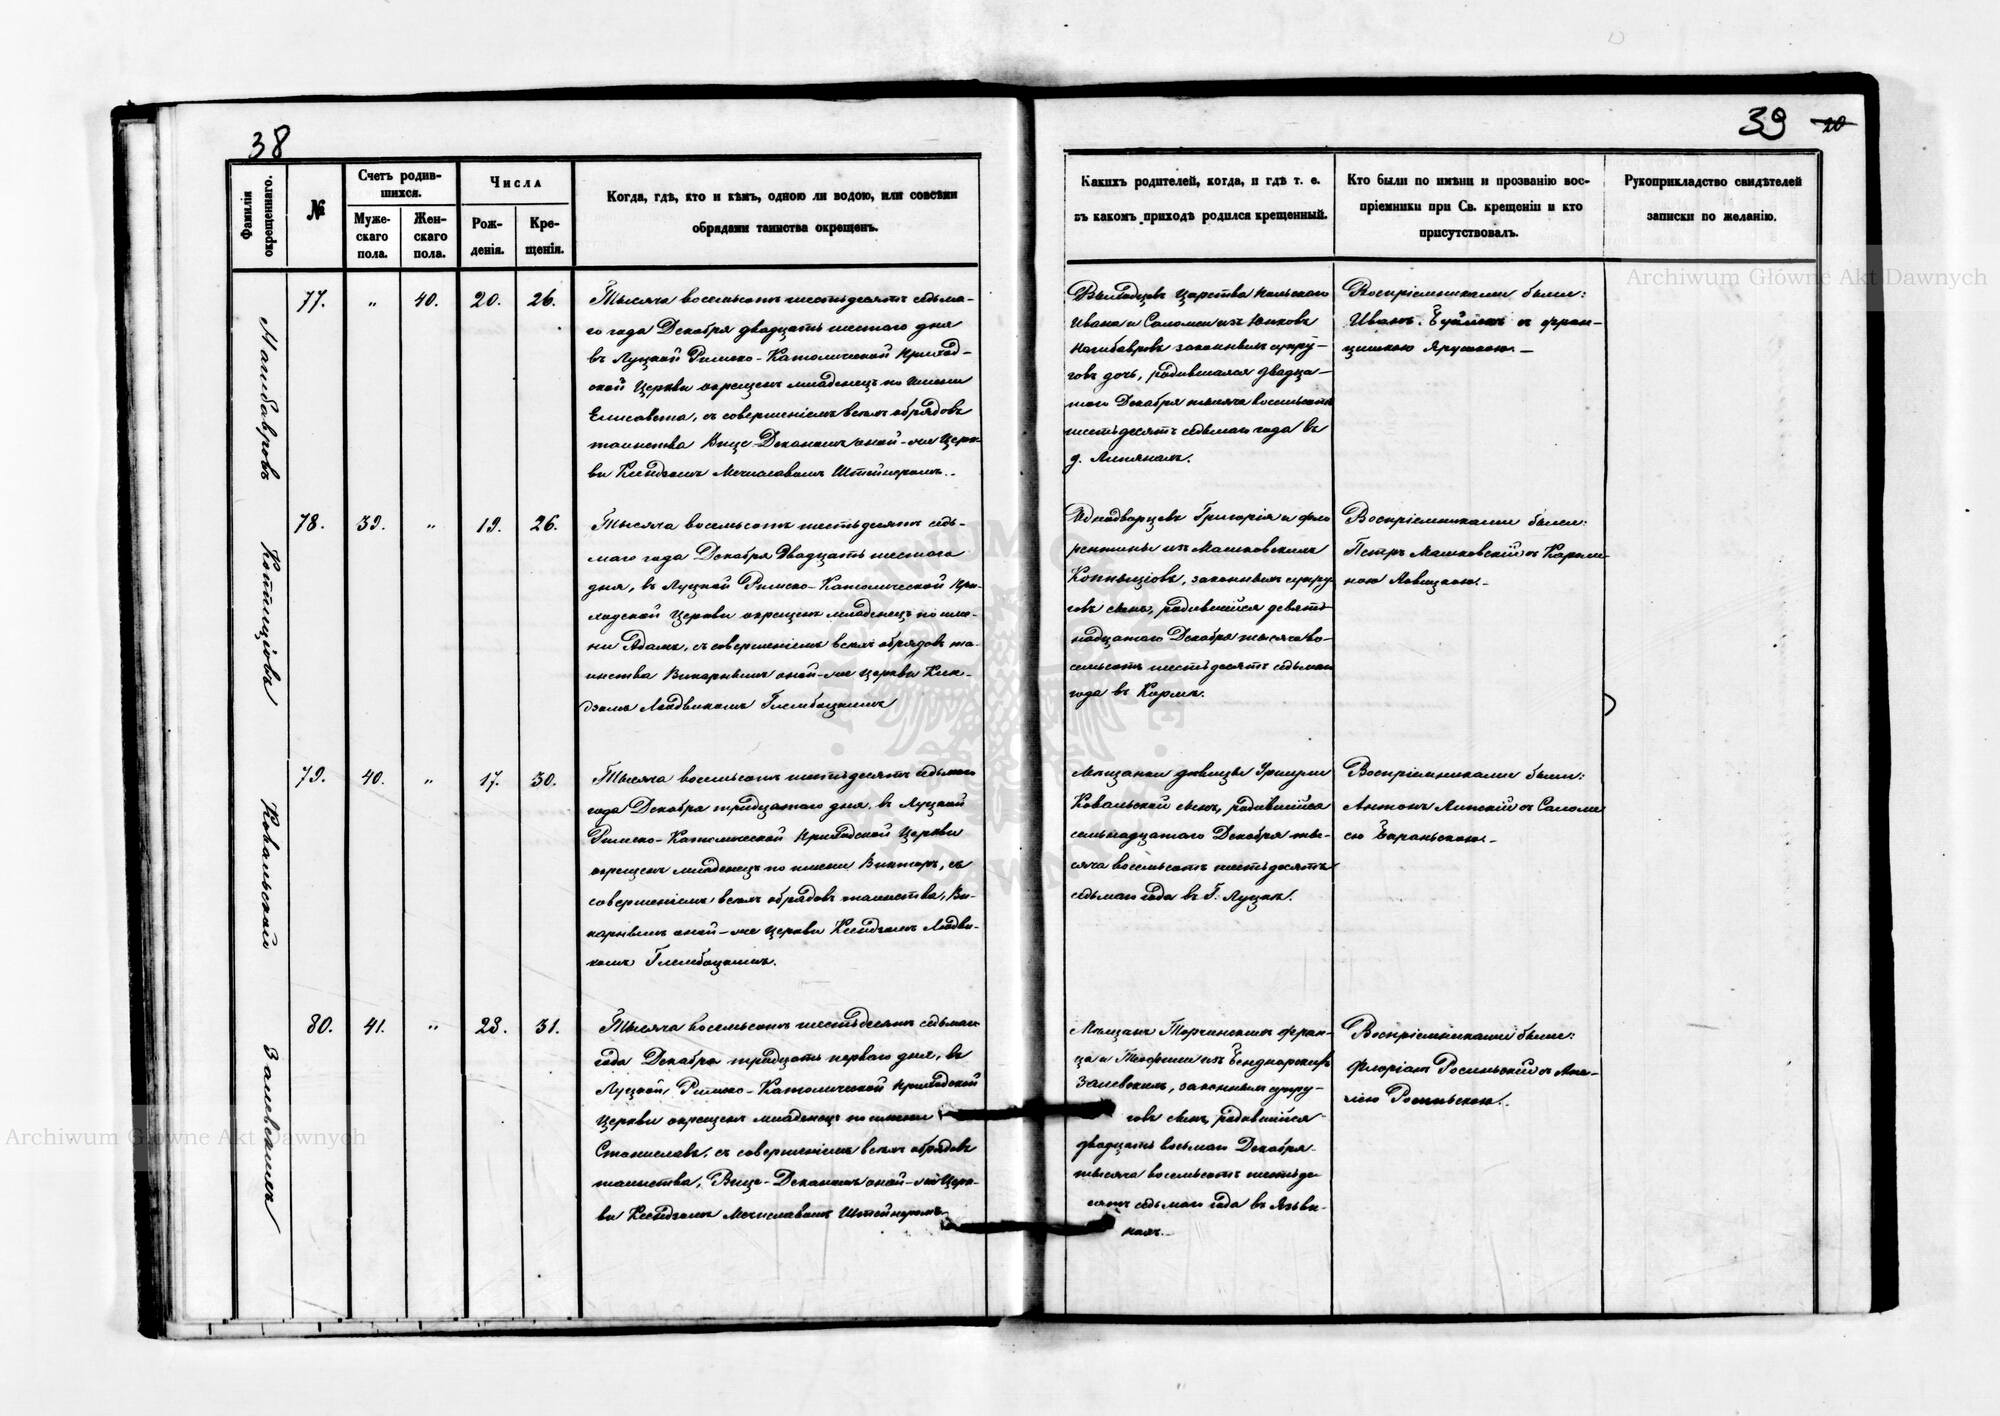 38
Фамилія
окрещеннаго.
№
Счетъ родив-
шихся.
Муже-
скаго
пола.
Жен-
скаго
пола.
Числа
Рож-
денія.
Кре-
щенія.
Когда, гдѣ, кто и кѣмъ, одною ли водою, или совсѣми
обрядами таинства окрещенъ.
77.
„
40.
20.
26.
Тысяча восемьсотъ шестьдесятъ седьма-
го года Декабря двадцать шестого дня
въ Луцкой Римско-Католической Приход-
ской Церкви окрещенъ младенецъ по имени
Елисавета, съ совершеніемъ всѣхъ обрядовъ
таинства Вице-Деканомъ оной-же Церк-
ви Ксендзомъ Мечиславомъ Штейнгромъ.
Копыціовъ
78.
39.
„
19.
26.
Тысяча восемьсотъ шестьдесятъ седь-
маго года Декабря двадцать шестого
дня, въ Луцкой Римско-Католической При-
ходской Церкви окрещенъ младенецъ по име-
ни Адамъ, съ совершеніемъ всѣхъ обрядовъ та-
инства Викарнымъ оной-же Церкви Ксен-
дзомъ Людвикомъ Глембоцкимъ
Ковальскій
79.
40.
„
17.
30.
Тысяча восемьсотъ шестьдесятъ седьмаго
года Декабря тридцатого дня, въ Луцкой
Римско-Католической Приходской Церкви
окрещенъ младенецъ по имени Викторъ, съ
совершеніемъ всѣхъ обрядовъ таинства, Ви-
карнымъ оной-же Церкви Ксендзомъ Людви-
комъ Глембоцкимъ.
Залевскихъ
80.
41.
„
28.
31.
Тысяча восемьсотъ шестьдесятъ седьмаго
года Декабря тридцать перваго дня, въ
Луцкой Римско-Католической Приходской
Церкви окрещенъ младенецъ по имени
Станиславъ, съ совершеніемъ всѣхъ обрядовъ
таинства, Вице-Деканомъ оной-же Церк-
ви Ксендзомъ Мечиславомъ Штейнгромъ
39
20
Какихъ родителей, когда, и гдѣ т. е.
въ какомъ приходѣ родился крещенный.
Кто были по имѣни и прозванію вос-
пріемники при Св. крещеніи и кто
присутствовалъ.
Рукоприкладство свидѣтелей
записки по желанію.
Выходцевъ Царства Польскаго
Ивана и Саломеи изъ
законныхъ супру-
говъ дочь, родившаяся двадца-
таго Декабря тысяча восемьсотъ
шестьдесятъ седьмаго года въ
д. Липлянахъ.
Воспріемниками были:
Иванъ и Фран-
цишкою
Однодворцевъ Григорія и Фло
рентины изъ Машковскихъ
Копыціовъ, законныхъ супру
говъ сынъ, родившійся девят-
надцатого Декабря тысяча во-
семьсотъ шестьдесятъ седьмаго
года въ
Воспріемниками были:
Петръ Машковскій съ Кароли-
ною
Мѣщанки дѣвицы
Ковальской сынъ, родившійся
семьнадцатого Декабря ты-
сяча восемьсотъ шестьдесятъ
седьмаго года въ Г. Луцкѣ.
Воспріемниками были:
Антонъ Липскій съ Саломе
ею Бараньскою.
Мѣщанъ Торчинскихъ Фран-
ца и Теофили изъ Бендкарскихъ
Залевскихъ, законныхъ супру-
говъ сынъ, родившійся
двадцать восьмаго Декабря
тысяча восемьсотъ шестьде
сятъ седьмаго года въ Язви-
нахъ.
Воспріемниками были:
Флоріанъ Росиньскій съ
Росиньскою.
Archiwum Główne Akt Dawnych
Archiwum Główne Akt Dawnych